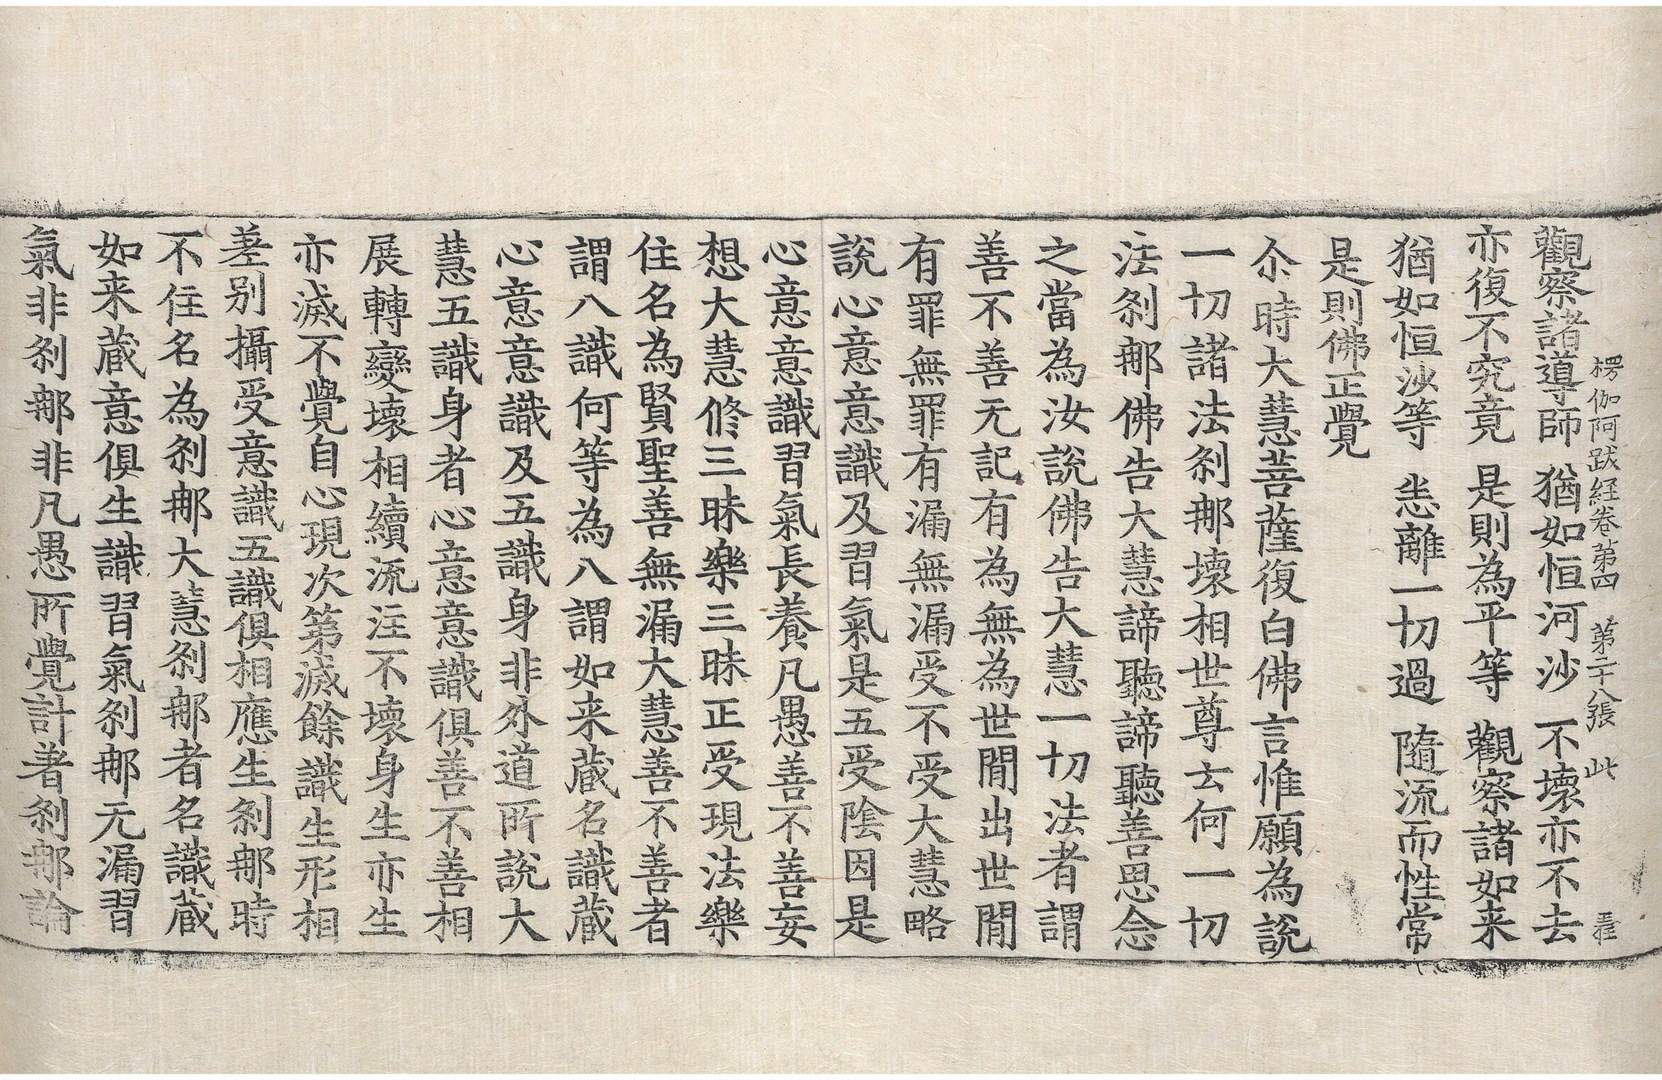 楞伽阿跋経卷第四　第二十八張　此
觀察諸導師　猶如恒河沙　不壞亦不去
亦復不究竟　是則為平等　觀察諸如来
猶如恒沙等　悉離一切過　隨流而性常
是則佛正覺
尒時大慧菩薩復白佛言惟願為說
一切諸法刹那壞相世尊云何一切
法刹那佛告大慧諦聽諦聽善思念
之當為汝說佛告大慧一切法者謂
善不善无記有為無為世閒出世閒
有罪無罪有漏無漏受不受大慧略
說心意意識及習氣是五受陰因是
心意意識習氣長養凡愚善不善妄
想大慧修三昧樂三昧正受現法樂
住名為賢聖善無漏大慧善不善者
謂八識何等為八謂如来蔵名識蔵
心意意識及五識身非外道所說大
慧五識身者心意意識俱善不善相
展轉變壞相續流注不壞身生亦生
亦滅不覺自心現次第滅餘識生形相
差別攝受意識五識俱相應生刹那時
不住名為刹那大慧刹那者名識蔵
如来蔵意俱生識習氣刹那无漏習
氣非刹那非凡愚所覺計著刹那論